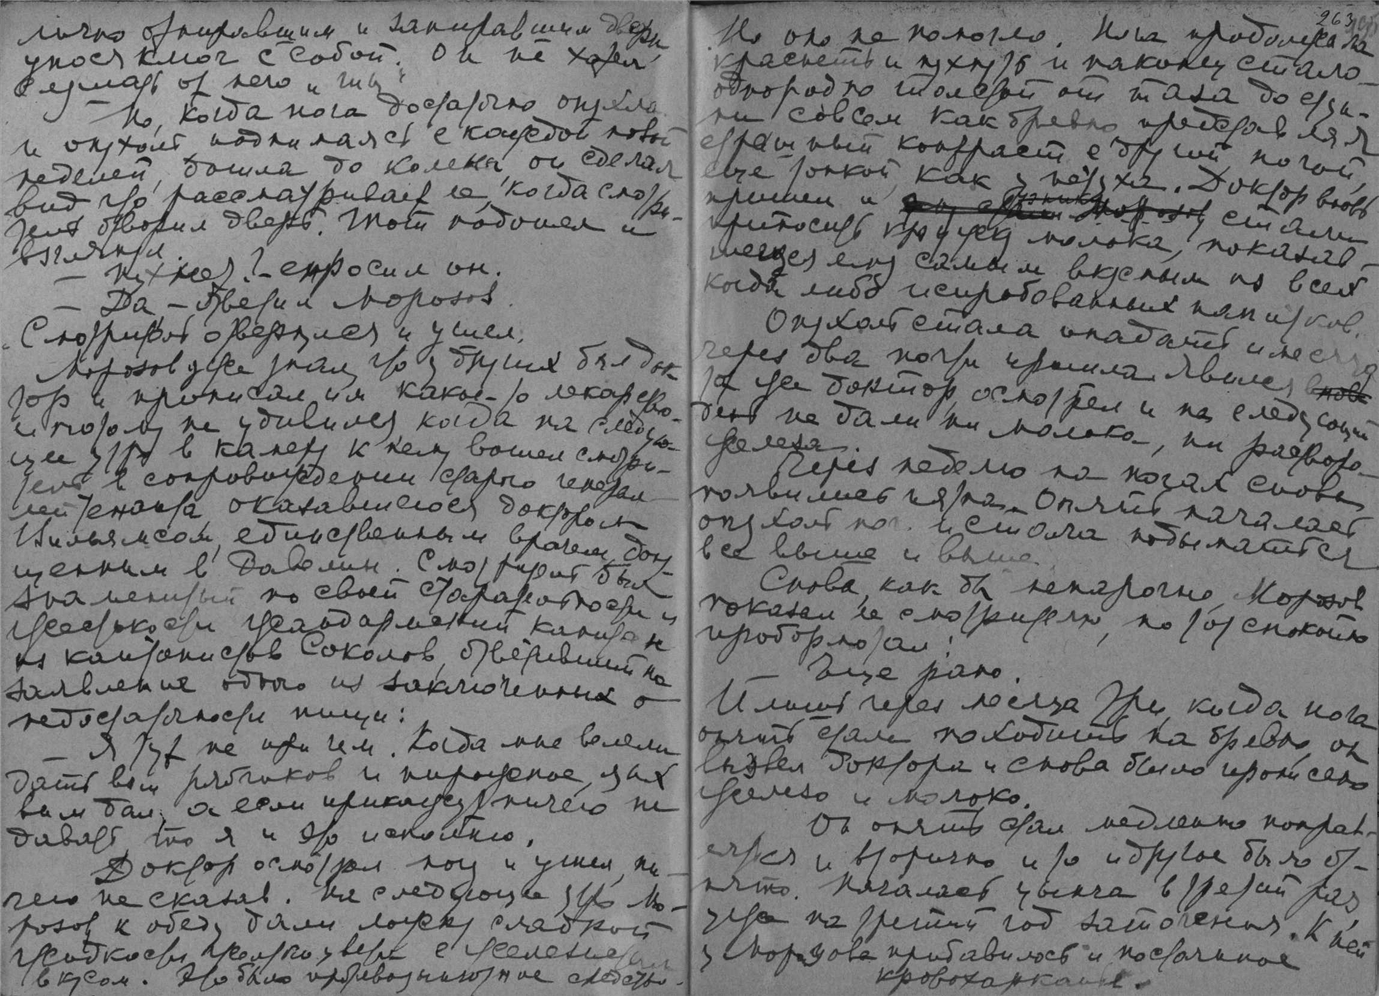 лично отпиравшим и запиравшим дверь,
унося ключ с собой. Он не хотел
Но, когда нога достаточно опухла
и опухоль поднимаясь с каждой новой
неделей, дошла до колена, он сделал
вид что рассматривает ее, когда смотри-
тель отворил дверь. Тот подошел и
взглянул.
— Пухнет? — спросил он.
— Да, — ответил Морозов.
Смотритель отвернулся и ушел.
Морозов уже знал, что у других был док-
тор и прописал им какое-то лекарство
и потому не удивился когда на следую-
щее утро в камеру к нему вошел смотри-
тель в сопровождении старого генерал
лейтенанта оказавшегося доктором
Вильямсом, единственным врачем, допу-
щенным в Равелин. Смотритель был
знаменитый по своей старательности и
жестокости жандармский капитан
из кантонистов Соколов, ответивший на
заявление одного из заключенных о
недостаточности пищи:
— Я тут не при чем. Когда мне велели
дать вам рябчиков и пирожное, я их
вам дал, а если прикажут ничего не
давать то я и это исполню.
Доктор осмотрел ногу и ушел, ни-
чего не сказав. На следующее утро Мо-
розову к обеду дали ложку сладкой
жидкости с железным
вкусом. Это было противоцынготное средство.
263
Но оно не помогло. Нога продолжала
краснеть и пухнуть и наконец стала
однородно толстой от таза до ступ-
ни совсем как бревно представляя
страшный контраст с другой ногой,
еще тонкой, как у петуха. Доктор вновь
пришел и стали
приносить кружку молока, показав-
шегося ему самым вкусным из всех
когда либо испробованных напитков.
Опухоль стала опадать и месяца
через два почти прошла. Явился
та же доктор осмотрел и на следующий
день не дали ни молока, ни раствора
железа.
Через неделю на ногах снова
появились пятна. Опять началась
опухоль ног и стала подыматься
все выше и выше.
Снова, как бы ненарочно, Морозов
показал ее смотрителю, но тот спокойно
пробормотал:
Еще рано.
И лишь через месяца три, когда нога
опять стала походить на бревно, он
привел доктора и снова было прописано
железо и молоко.
Он опять стал медленно поправ-
ляться и вторично и то и другое было от-
нято. Началась цынга в третий раз
уже на третий год заточения. К ней
у Морозова прибавилось и постоянное
кровохарканье.